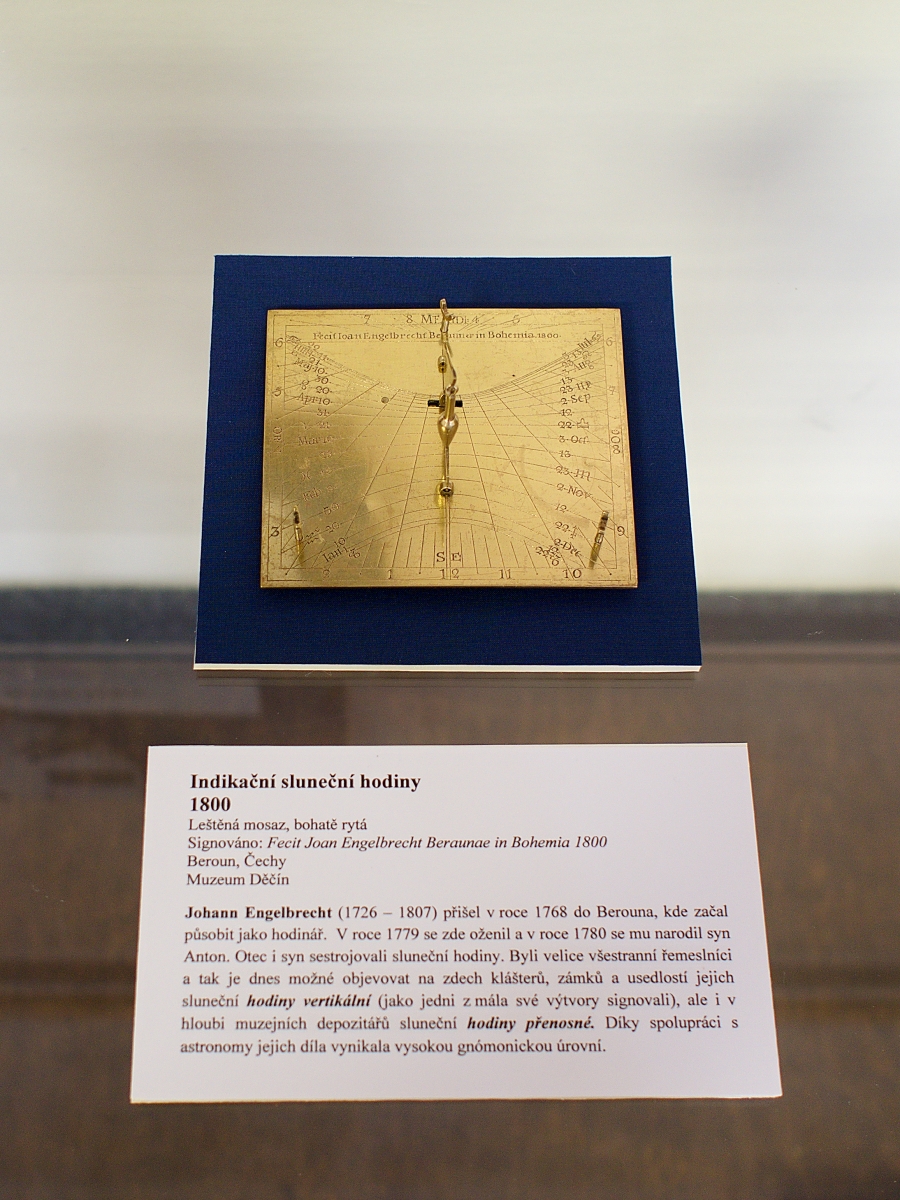 7 8 4 6
Fecit Joan Engelbrecht Beraunae in Bohemia 1800.
6 6
Majo
Apr 10
10
20
20
31
21
13
23
2 Sep
12
22
3 Oct
13
23
2 Nov
12
22
2 Dec
5
3 9
Jan
S E
1 12 11 10
Indikační sluneční hodiny
1800
Leštěná mosaz, bohatě rytá
Signováno: Fecit Joan Engelbrecht Beraunae in Bohemia 1800
Beroun, Čechy
Muzeum Děčín
Johann Engelbrecht (1726 – 1807) přišel v roce 1768 do Berouna, kde začal
působit jako hodinář. V roce 1779 se zde oženil a v roce 1780 se mu narodil syn
Anton. Otec i syn sestrojovali sluneční hodiny. Byli velice všestranní řemeslníci
a tak je dnes možné objevovat na zdech klášterů, zámků a usedlostí jejich
sluneční hodiny vertikální (jako jedni z mála své výtvory signovali), ale i v
hloubi muzejních depozitářů sluneční hodiny přenosné. Díky spolupráci s
astronomy jejich díla vynikala vysokou gnómonickou úrovní.